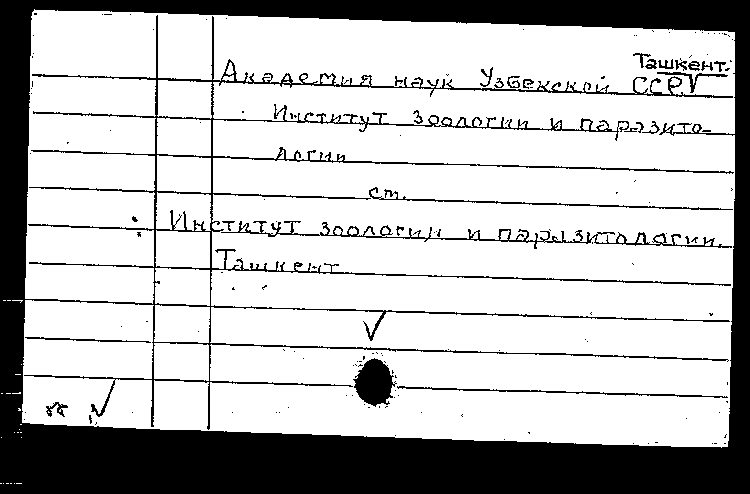 Ташкент.
Академия наук Узбекской ССР
Институт зоологии и паразито-
логии
ст.
Институт зоологии и паразитологии.
Ташкент